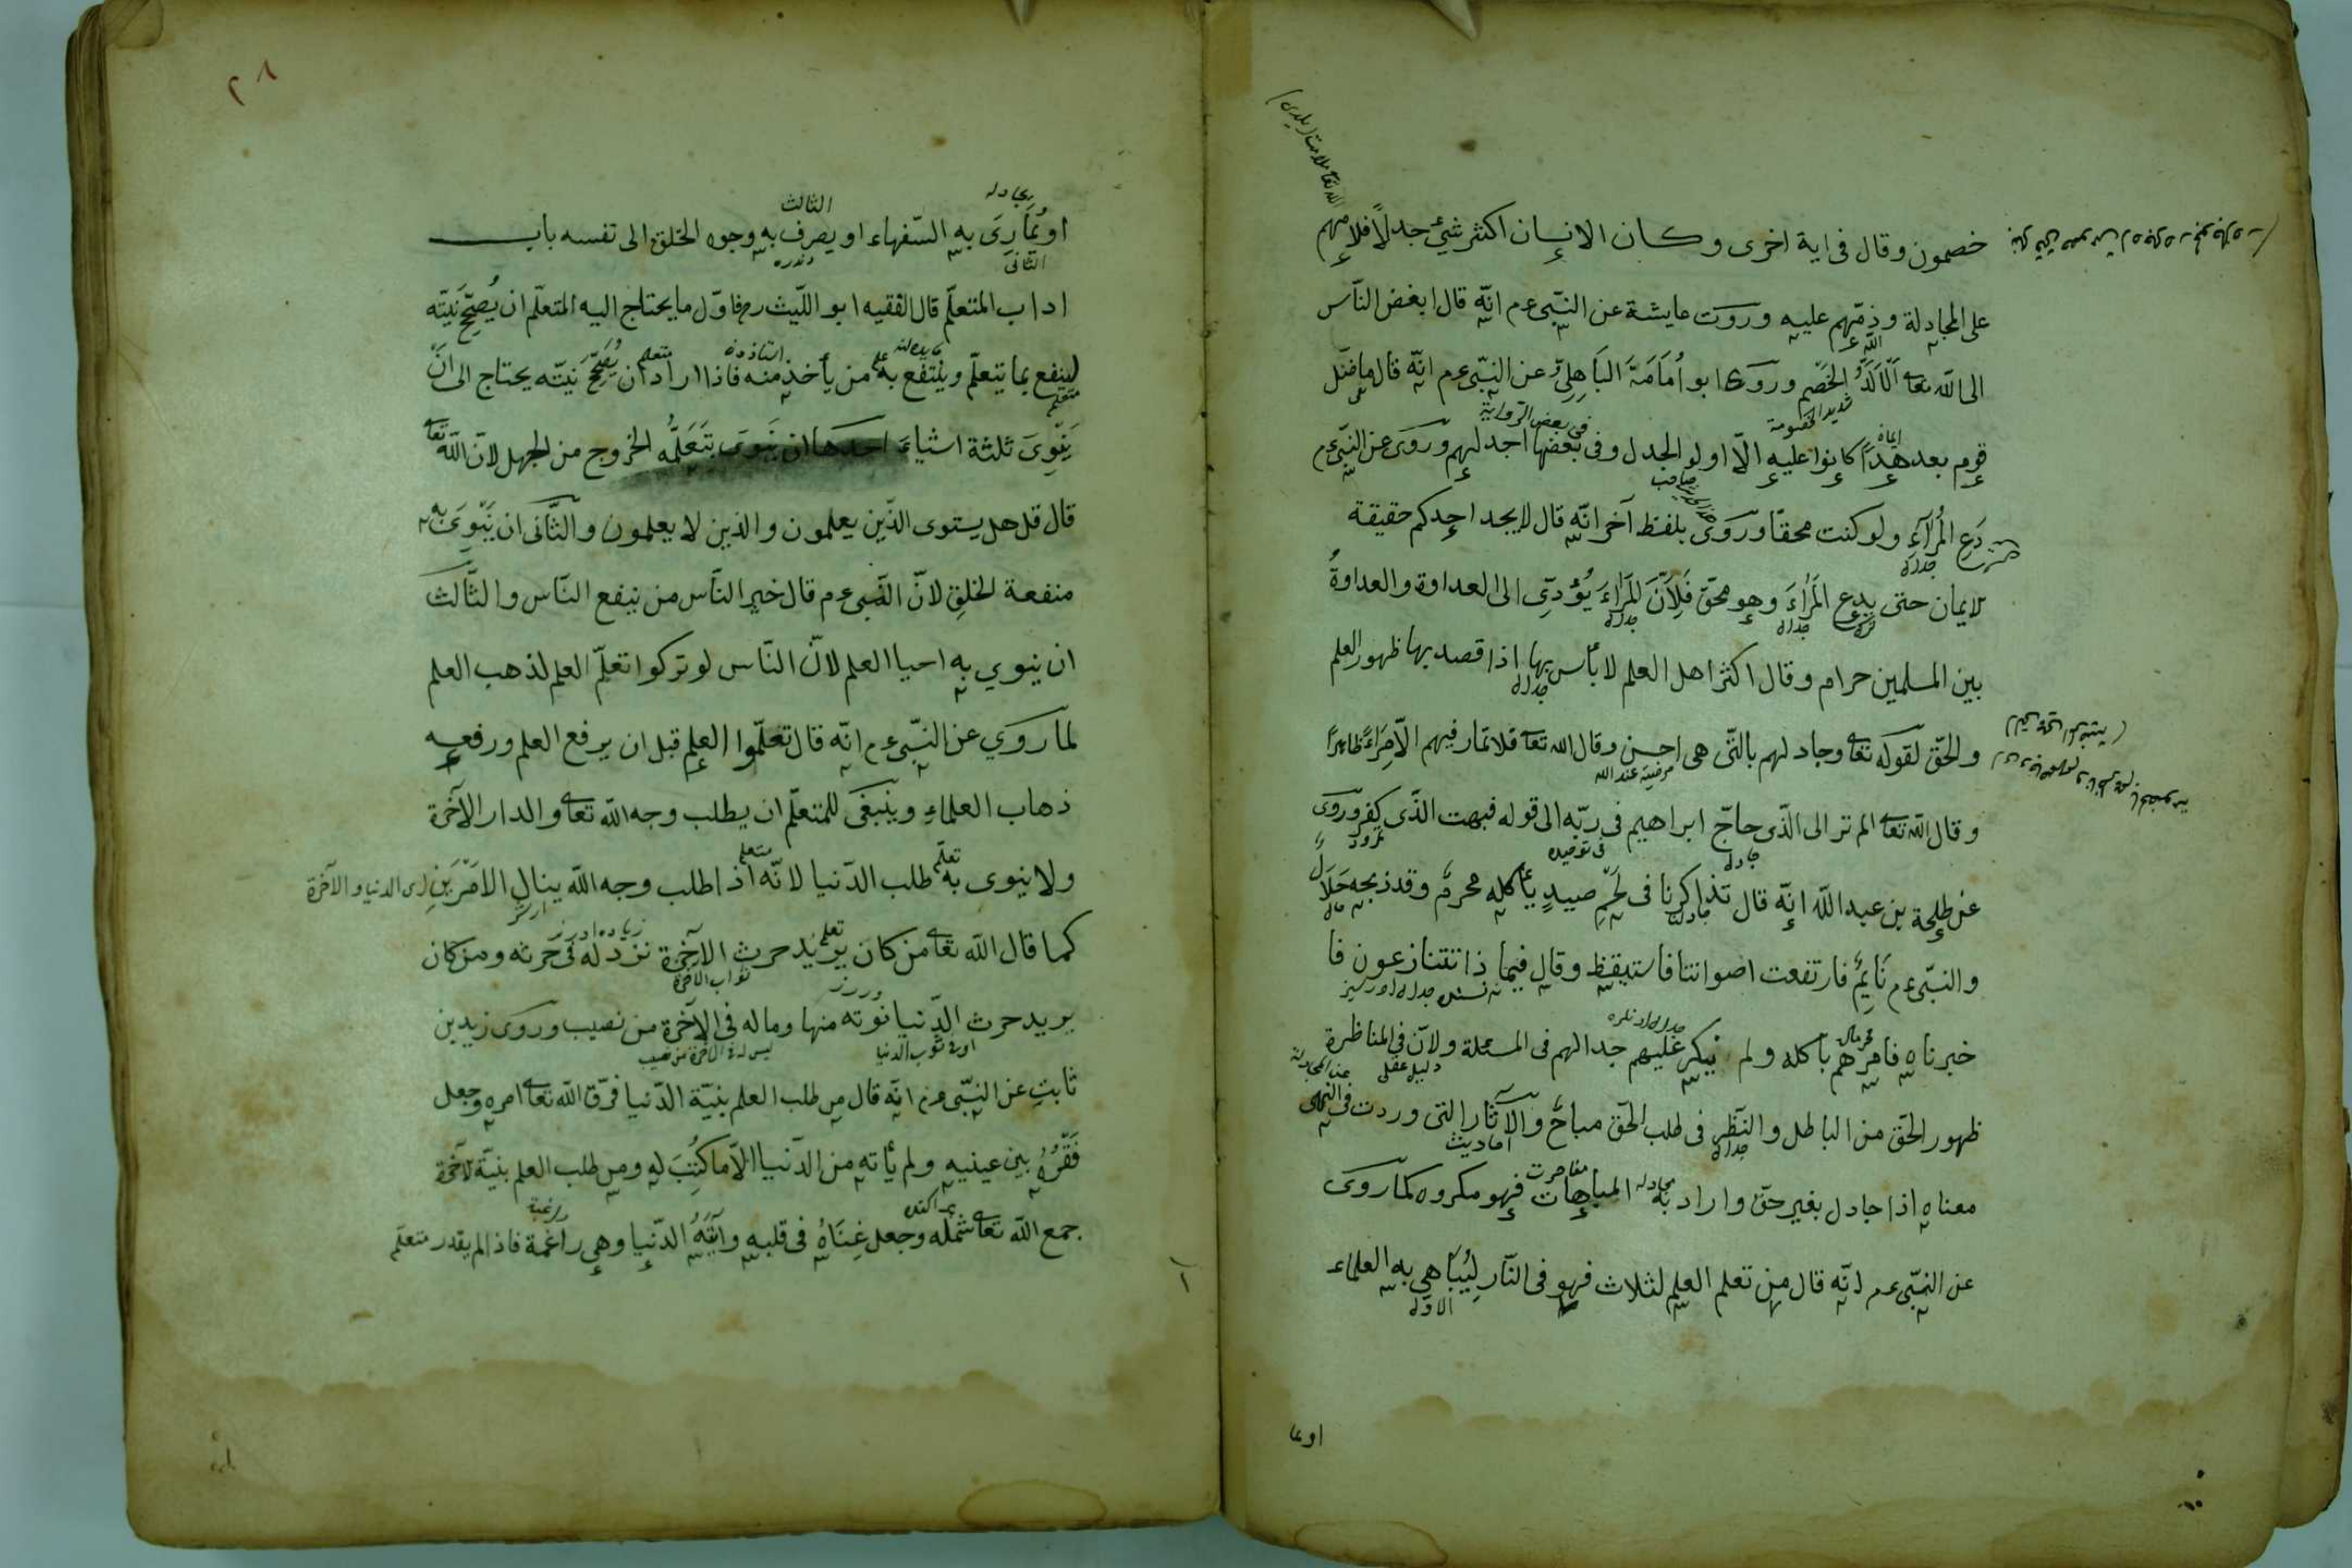 خصمون وقال فى اية اخرى وكان الانسان اكثر شئ جدلا فلامهم
على المجادلة وذمهم عليه وروت عايشة عن النبى عم انه قال ابغض الناس
الى الله تعا الالد الخصم وروى ابو امامة الباهلى عن النبى عم انه قال ما ضل
شديد الخصومة
فى بعض الرواية
قوم بعد هدا كانوا عليه الا اولو الجدل وفى بعضها اجدلهم وروى عن النبى عم
صاحب
دع المرآء ولو كنت محقا وروى بلفظ آخر انه قال لا يجد احدكم حقيقة
الايمان حتى يدع المراء وهو محق فلان المراء يؤدى الى العداوة والعداوة
بين المسلمين حرام وقال اكثر اهل العلم لا بأس بها اذا قصد بها ظهور العلم
والحق لقوله تعا وجادلهم بالتى هى احسن وقال الله تعا فلا تمار فيهم الا مراء ظاهرا
مرضية عند الله
وقال الله تعا الم تر الى الذى حاج ابراهيم فى ربه الى قوله فبهت الذى كفر وروى
نمرود
عن طلحة بن عبد الله انه قال تذاكرنا فى لحم صيد يأكله محرم وقد ذبحه حلال
والنبى عم نايم فارتفعت اصواتنا فاستيقظ وقال فيما ذا تتنازعون فا
خبرناه فامرهم باكله ولم ينكر عليهم جدالهم فى المسئلة ولان فى المناظرة
دليل عقلى
ظهور الحق من الباطل والنظر فى طلب الحق مباح والآثار التى وردت فى النهى
احاديث
معناه اذا جادل بغير حق واراد به المباهات فهو مكروه كما روى
عن النبى عم انه قال من تعلم العلم لثلاث فهو فى النار ليباهى به العلماء
الاول
اويما
٢٨
يجادله
الثالث
او يمارى به السفهاء او يصرف به وجوه الخلق الى نفسه باب
الثانى
اداب المتعلم قال الفقيه ابو الليث رح فاول ما يحتاج اليه المتعلم ان يصحح نيته
لينفع بما يتعلم وينتفع به من يأخذ منه فاذا اراد ان يصحح نيته يحتاج الى ان
متعلم
ينوى ثلثة اشياء احدها ان ينوى بتعلمه الخروج من الجهل لان الله تعا
قال قل هل يستوى الذين يعلمون والذين لا يعلمون والثانى ان ينوى به
منفعة الخلق لان النبى عم قال خير الناس من ينفع الناس والثالث
ان ينوي به احيا العلم لان الناس لو تركوا تعلم العلم لذهب العلم
لما روي عن النبى عم انه قال تعلموا العلم قبل ان يرفع العلم ورفعه
ذهاب العلماء وينبغى للمتعلم ان يطلب وجه الله تعا والدار الآخرة
ولا ينوى به طلب الدنيا لانه اذا طلب وجه الله ينال الامرين اى الدنيا والآخرة
كما قال الله تعا من كان يريد حرث الآخرة نزد له فى حرثه ومن كان
ثواب الآخرة
يريد حرث الدنيا نوته منها وما له فى الآخرة من نصيب وروى زيد بن
ثابت عن النبى عم انه قال من طلب العلم بنية الدنيا فرق الله تعا امره وجعل
فقره بين عينيه ولم يأته من الدنيا الا ما كتب له ومن طلب العلم بنية الآخرة
جمع الله تعا شمله وجعل غناه فى قلبه واتته الدنيا وهى راغمة فاذا لم يقدر متعلم